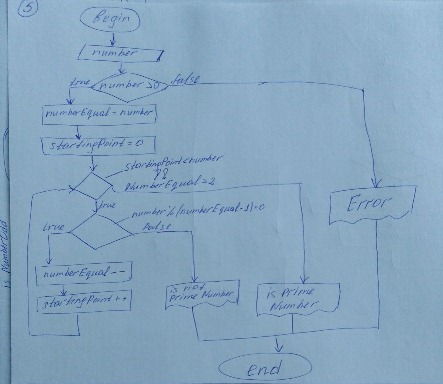 5
Begin
number
true
number >0
false
numberEqual = number
startingPoint = 0
startingPoint<number
numberEqual=2
true
number%(numberEqual-1)=0
true
false
numberEqual --
startingPoint ++
is not
Prime Number
is Prime
Number
Error
end
is Number